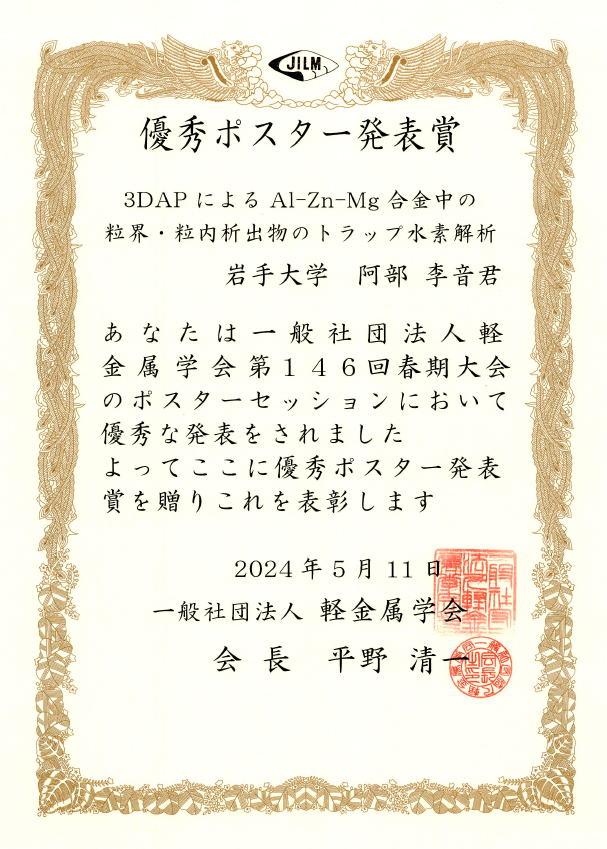 JILM
優秀ポスター発表賞
3DAP による Al-Zn-Mg 合金中の
粒界・粒内析出物のトラップ水素解析
岩手大学 阿部 李音君
あなたは一般社団法人軽
金属学会第146回春期大会
のポスターセッションにおいて
優秀な発表をされました
よってここに優秀ポスター発表
賞を贈りこれを表彰します
2024年5月11日
一般社団法人 軽金属学会
会長 平野 清一